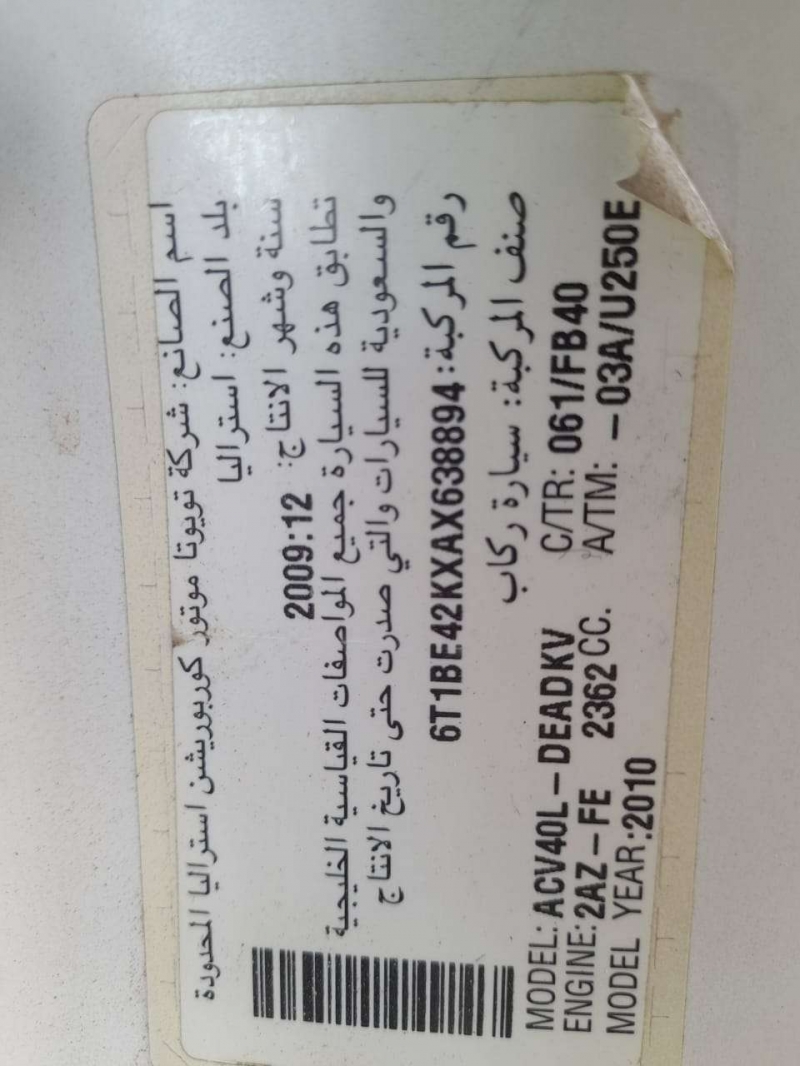 اسم الصانع: شركة تويوتا موتور كوربوريشن استراليا المحدودة
بلد الصنع: استراليا
سنة وشهر الانتاج: 2009:12
تطابق هذه السيارة جميع المواصفات القياسية الخليجية
والسعودية للسيارات والتي صدرت حتى تاريخ الانتاج
رقم المركبة: 6T1BE42KXAX638894
صنف المركبة: سيارة ركاب
MODEL: ACV40L-DEADKV C/TR: 061/FB40
ENGINE: 2AZ-FE 2362 CC. A/TM: -03A/U250E
MODEL YEAR:2010